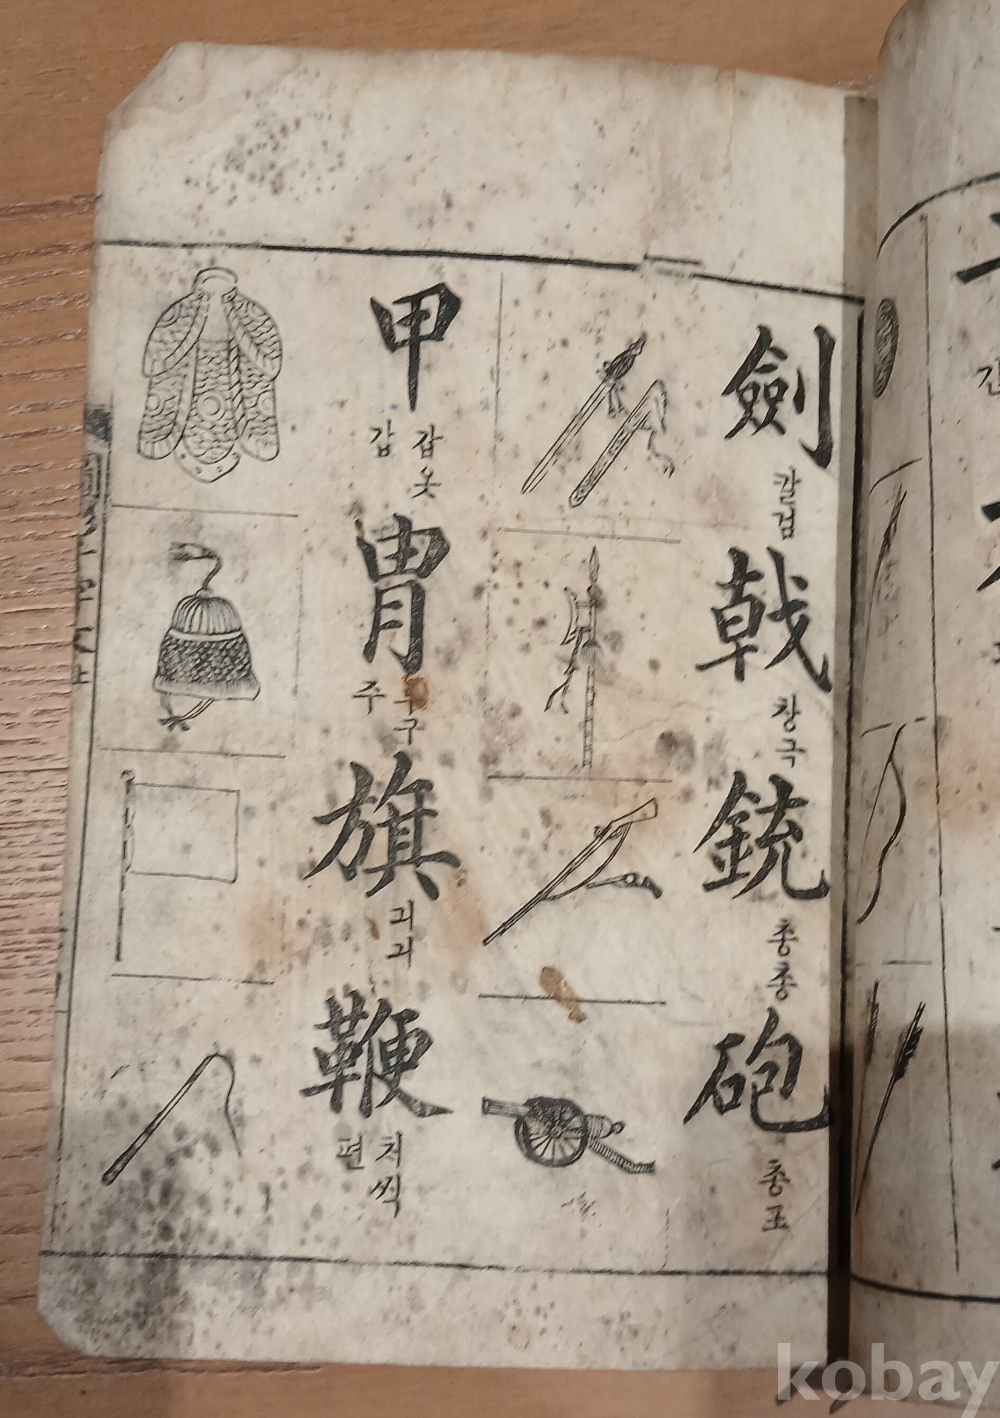 劍
칼 검
戟
창 극
銃
총 총
砲
총 포
甲
갑옷 갑
胄
투구 주
旗
긔 긔
鞭
편
kobay